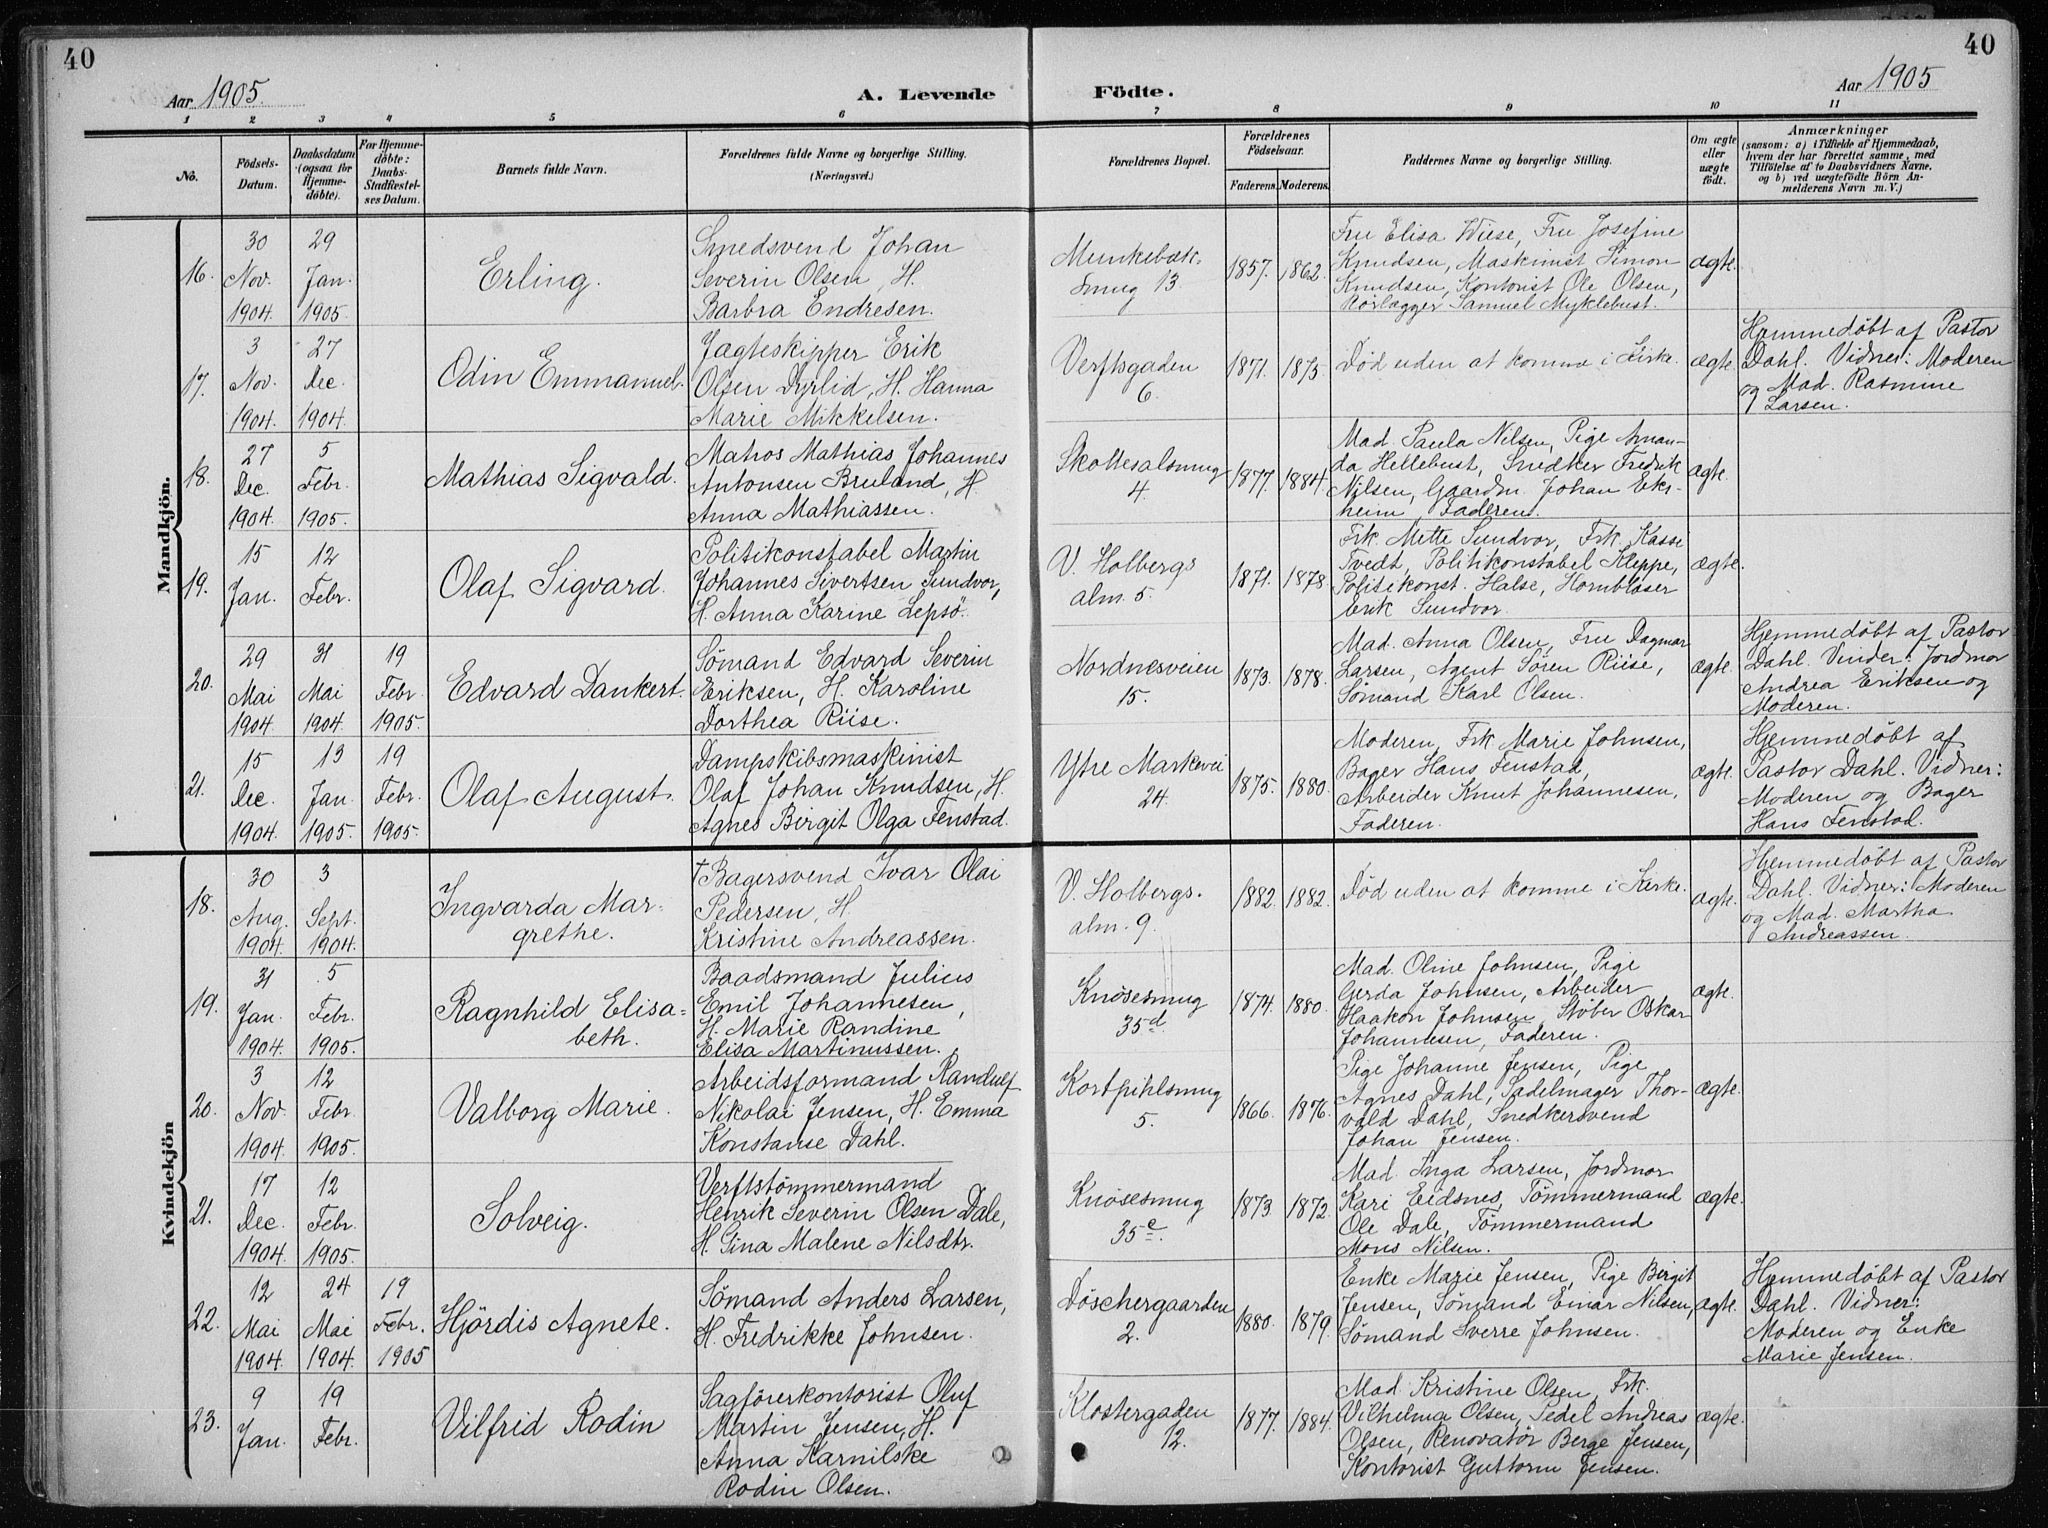 40
Aar 1905.
A. Levende
1 2 3 4 5 6
No.
Födsels-Datum.
Daabsdatum (ogsaa for Hjemmedöbte).
For Hjemmedöbte: Daabs-Stadfæstelses Datum.
Barnets fulde Navn.
Forældrenes fulde Navne og borgerlige Stilling.
(Næringsvei.)
Födte.
Aar 1905
40
7 8 9 10 11
Forældrenes Bopæl.
Forældrenes Födselsaar.
Faderens. Moderens.
Faddernes Navne og borgerlige Stilling.
Om ægte eller uægte födt.
Anmærkninger
(saasom: a) i Tilfælde af Hjemmedaab, hvem der har forrettet samme, med Tilföielse af to Daabsvidners Navne, og b) ved uægtefödte Börn Anmelderens Navn m. V.)
Mandkjön.
16.
30 Nov. 1904.
29 Jan. 1905.
Erling.
Smedsvend Johan
Severin Olsen, H.
Barbra Endresen.
Munkebæk-
smug 13.
1857. 1862.
Fru Elisa Wiese, Fru Josefine
Knudsen, Maskinist Simon
Knudsen, Kontorist Ole Olsen,
Rörlægger Samuel Myklebust.
ægte.
17.
3 Nov. 1904.
27 Dec. 1904.
Odin Emmanuel.
Jagteskipper Erik
Olsen Dyrlid, H. Hanna
Marie Mikkelsen.
Verftsgaden
6.
1871. 1873.
Död uden at komme i Kirke.
ægte.
Hjemmedöbt af Pastor
Dahl. Vidner: Moderen
og Mad. Rasmine
Larsen.
18.
27 Dec. 1904.
5 Febr. 1905.
Mathias Sigvald.
Matros Mathias Johannes
Antonsen Bruland, H.
Anna Mathiassen.
Skottesalsmug
4.
1877. 1884.
Mad. Paula Nilsen, Pige Aman-
da Hellebust, Snedker Fredrik
Nilsen, Gaardm. Johan Eks-
heim, Faderen.
ægte.
19.
15 Jan.
12 Febr.
Olaf Sigvard.
Politikonstabel Martin
Johannes Sivertsen Sundvor,
H. Anna Karine Lepsö.
V. Holbergs
alm. 5.
1871. 1878.
Frk. Mette Sundvor, Frk. Kasse
Tvedt, Politikonstabel Kleppe,
Politikonst. Halse, Hornblæser
Erik Sundvor.
ægte.
20.
29 Mai 1904.
31 Mai 1904.
19 Febr. 1905.
Edvard Dankert.
Sömand Edvard Severin
Eriksen, H. Karoline
Dorthea Riise.
Nordnesveien
15.
1873. 1878.
Mad. Anna Olsen, Fru Dagmar
Larsen, Agent Sören Riise,
Sömand Karl Olsen.
ægte.
Hjemmedöbt af Pastor
Dahl. Vinder: Jordmor
Andrea Eriksen og
Moderen.
21.
15 Dec. 1904.
13 Jan. 1905.
19 Febr. 1905.
Olaf August.
Dampskibsmaskinist
Olaf Johan Knudsen, H.
Agnes Birgit Olga Fenstad.
Ytre Markevei
24.
1875. 1880.
Moderen, Frk Marie Johnsen,
Bager Hans Fenstad,
Arbeider Knut Johannesen,
Faderen.
ægte.
Hjemmedöbt af
Pastor Dahl. Vidner:
Moderen og Bager
Hans Fenstad.
Kvindekjön
18.
30 Aug. 1904.
3 Sept. 1904.
Ingvarda Mar-
grethe.
† Bagersvend Ivar Olai
Pedersen, H.
Kristine Andreassen.
V. Holbergs.
alm. 9.
1882. 1882.
Död uden at komme i Kirke.
ægte.
Hjemmedöbt af Pastor
Dahl. Vidner: Moderen
og Mad. Martha
Andreassen.
19.
31 Jan. 1904.
5 Febr. 1905.
Ragnhild Elisa-
beth.
Baadsmand Julius
Emil Johannesen,
H. Marie Randine
Elisa Martinussen.
Knösesmug
35d
1874. 1880.
Mad. Oline Johnsen, Pige
Gerda Johnsen, Arbeider
Haakon Johnsen, Stöber Oskar
Johannesen, Faderen.
ægte.
20.
3 Nov. 1904.
12 Febr. 1905.
Valborg Marie.
Arbeidsformand Randulf
Nikolai Jensen, H. Emma
Konstanse Dahl.
Kortpihlsmug
5.
1866. 1876.
Pige Johanne Jensen, Pige
Agnes Dahl, Sadelmager Thor-
vald Dahl, Snedkersvend
Johan Jensen.
ægte.
21.
17 Dec. 1904.
12 Febr. 1905.
Solveig.
Verftstömmermand
Henrik Severin Olsen Dale,
H. Gina Malene Nilsdtr.
Knösesmug
35e.
1873. 1872.
Mad. Inga Larsen, Jordmor
Kari Eidsnes, Tömmermand
Ole Dale, Tömmermand
Mons Nilsen.
ægte.
22.
12 Mai 1904.
24 Mai 1904.
19 Febr. 1905
Hjördis Agnete.
Sömand Anders Larsen,
H. Fredrikke Johnsen.
Döschergaarden
2.
1880. 1879.
Enke Marie Jensen, Pige Birgit
Jensen, Sömand Einar Nilsen,
Sömand Sverre Johnsen.
ægte.
Hjemmedöbt af Pastor
Dahl. Vidner:
Moderen og Enke
Marie Jensen.
23.
9 Jan.
19 Febr.
Vilfrid Rodin
Sagförerkontorist Oluf
Martin Jensen, H.
Anna Karnilske
Rodin Olsen.
Klostergaden
12.
1877. 1884.
Mad. Kristine Olsen, Frk.
Vilhelma Olsen, Pedel Andreas
Olsen, Renovatör Berge Jensen,
Kontorist Guttorm Jensen.
ægte.